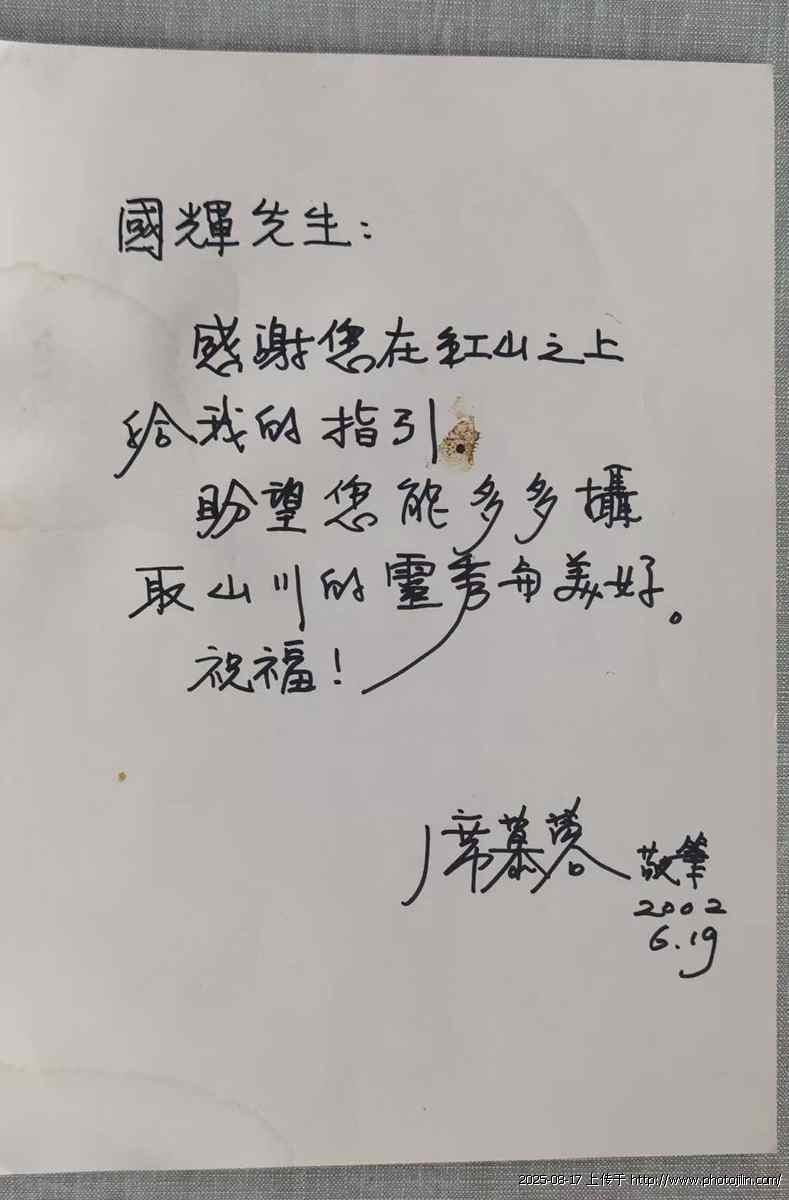 國輝先生：
感謝您在紅山之上
給我的指引。
盼望您能多多攝
取山川的靈秀与美好。
祝福！
席慕蓉 敬筆
2002
6.19
2025-08-17 上传于 http://www.photojilin.com/